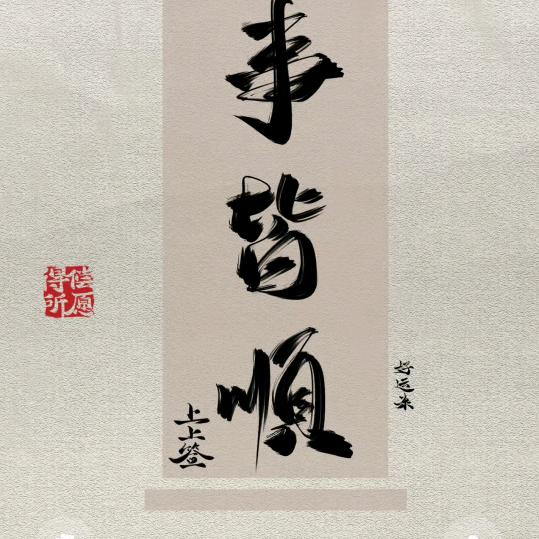 事皆順
上上簽
好运来
得偿所愿